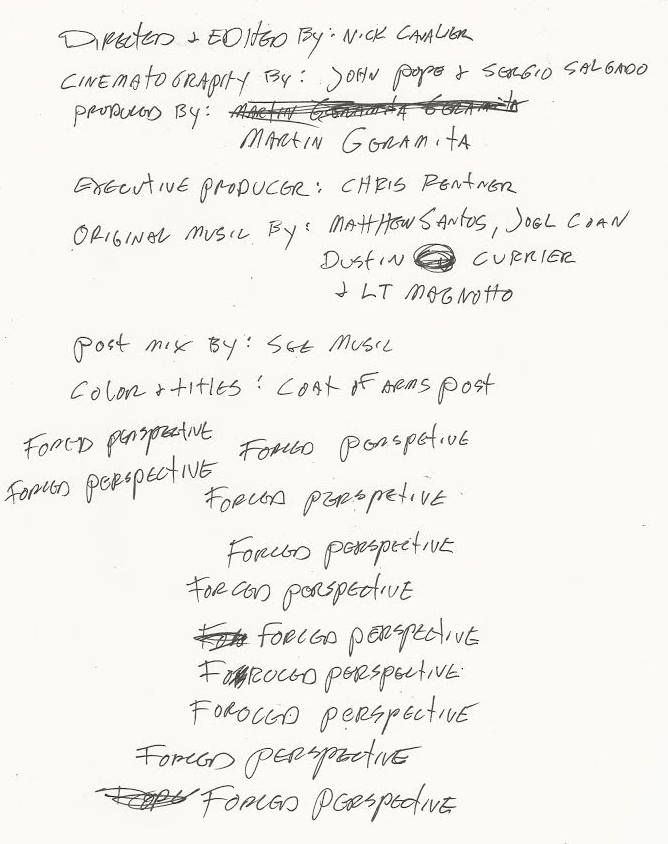 DIRECTED & EDITED BY: NICK CAVALIER
CINEMATOGRAPHY BY: JOHN POPE & SERGIO SALGADO
PRODUCED BY: MARTIN GERAMITA GERAMITA
MARTIN GERAMITA
EXECUTIVE PRODUCER: CHRIS RENTNER
ORIGINAL MUSIC BY: MATTHEW SANTOS, JOEL COAN
DUSTIN CURRIER
& LT MAGNOTTO
POST MIX BY: SGE MUSIC
COLOR & TITLES: COAT OF ARMS POST
FORCED PERSPECTIVE
FORCED PERSPETIVE
FORCED PERSPECTIVE
FORCED PERSPETIVE
FORCED PERSPECTIVE
FORCED PERSPECTIVE
FORCED PERSPECTIVE
FORCED PERSPECTIVE
FOROCED PERSPECTIVE
FORCED PERSPECTIVE
FORCED PERSPECTIVE